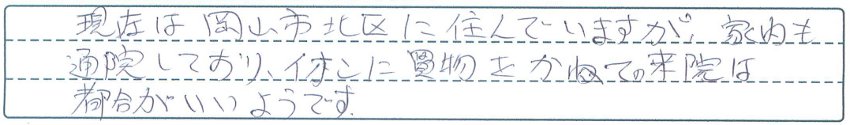 現在は岡山市北区に住んでいますが、家内も
通院しており、イオンに買物をかねての来院は
都合がいいようです。